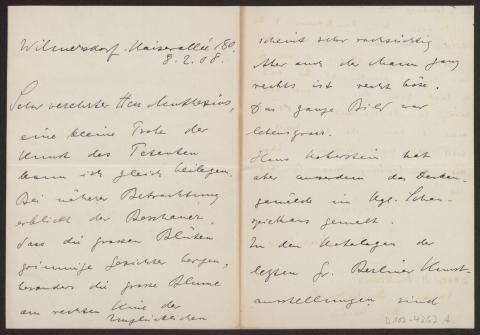 Wilmersdorf. Kaiserallée 180.
8.2.08.
Sehr verehrter Herr Muthesius,
eine kleine Probe der
Kunst des Patienten
kann ich gleich beilegen.
Bei näherer Betrachtung
erblickt der Beschauer,
dass die grossen Blüten
grimmige Gesichter bergen,
besonders die grosse Blume
am rechten Knie des
Unglücklichen
scheint sehr rachsüchtig
Aber auch der Mann ganz
rechts ist recht böse.
Das ganze Bild war
lebensgross.
Hans hat
aber ausserdem das Decken-
gemälde in Kgl. Schau-
spielhaus gemalt.
In den Katalogen der
letzten Gr. Berliner Kunst-
ausstellungen sind
D 102-4262 A